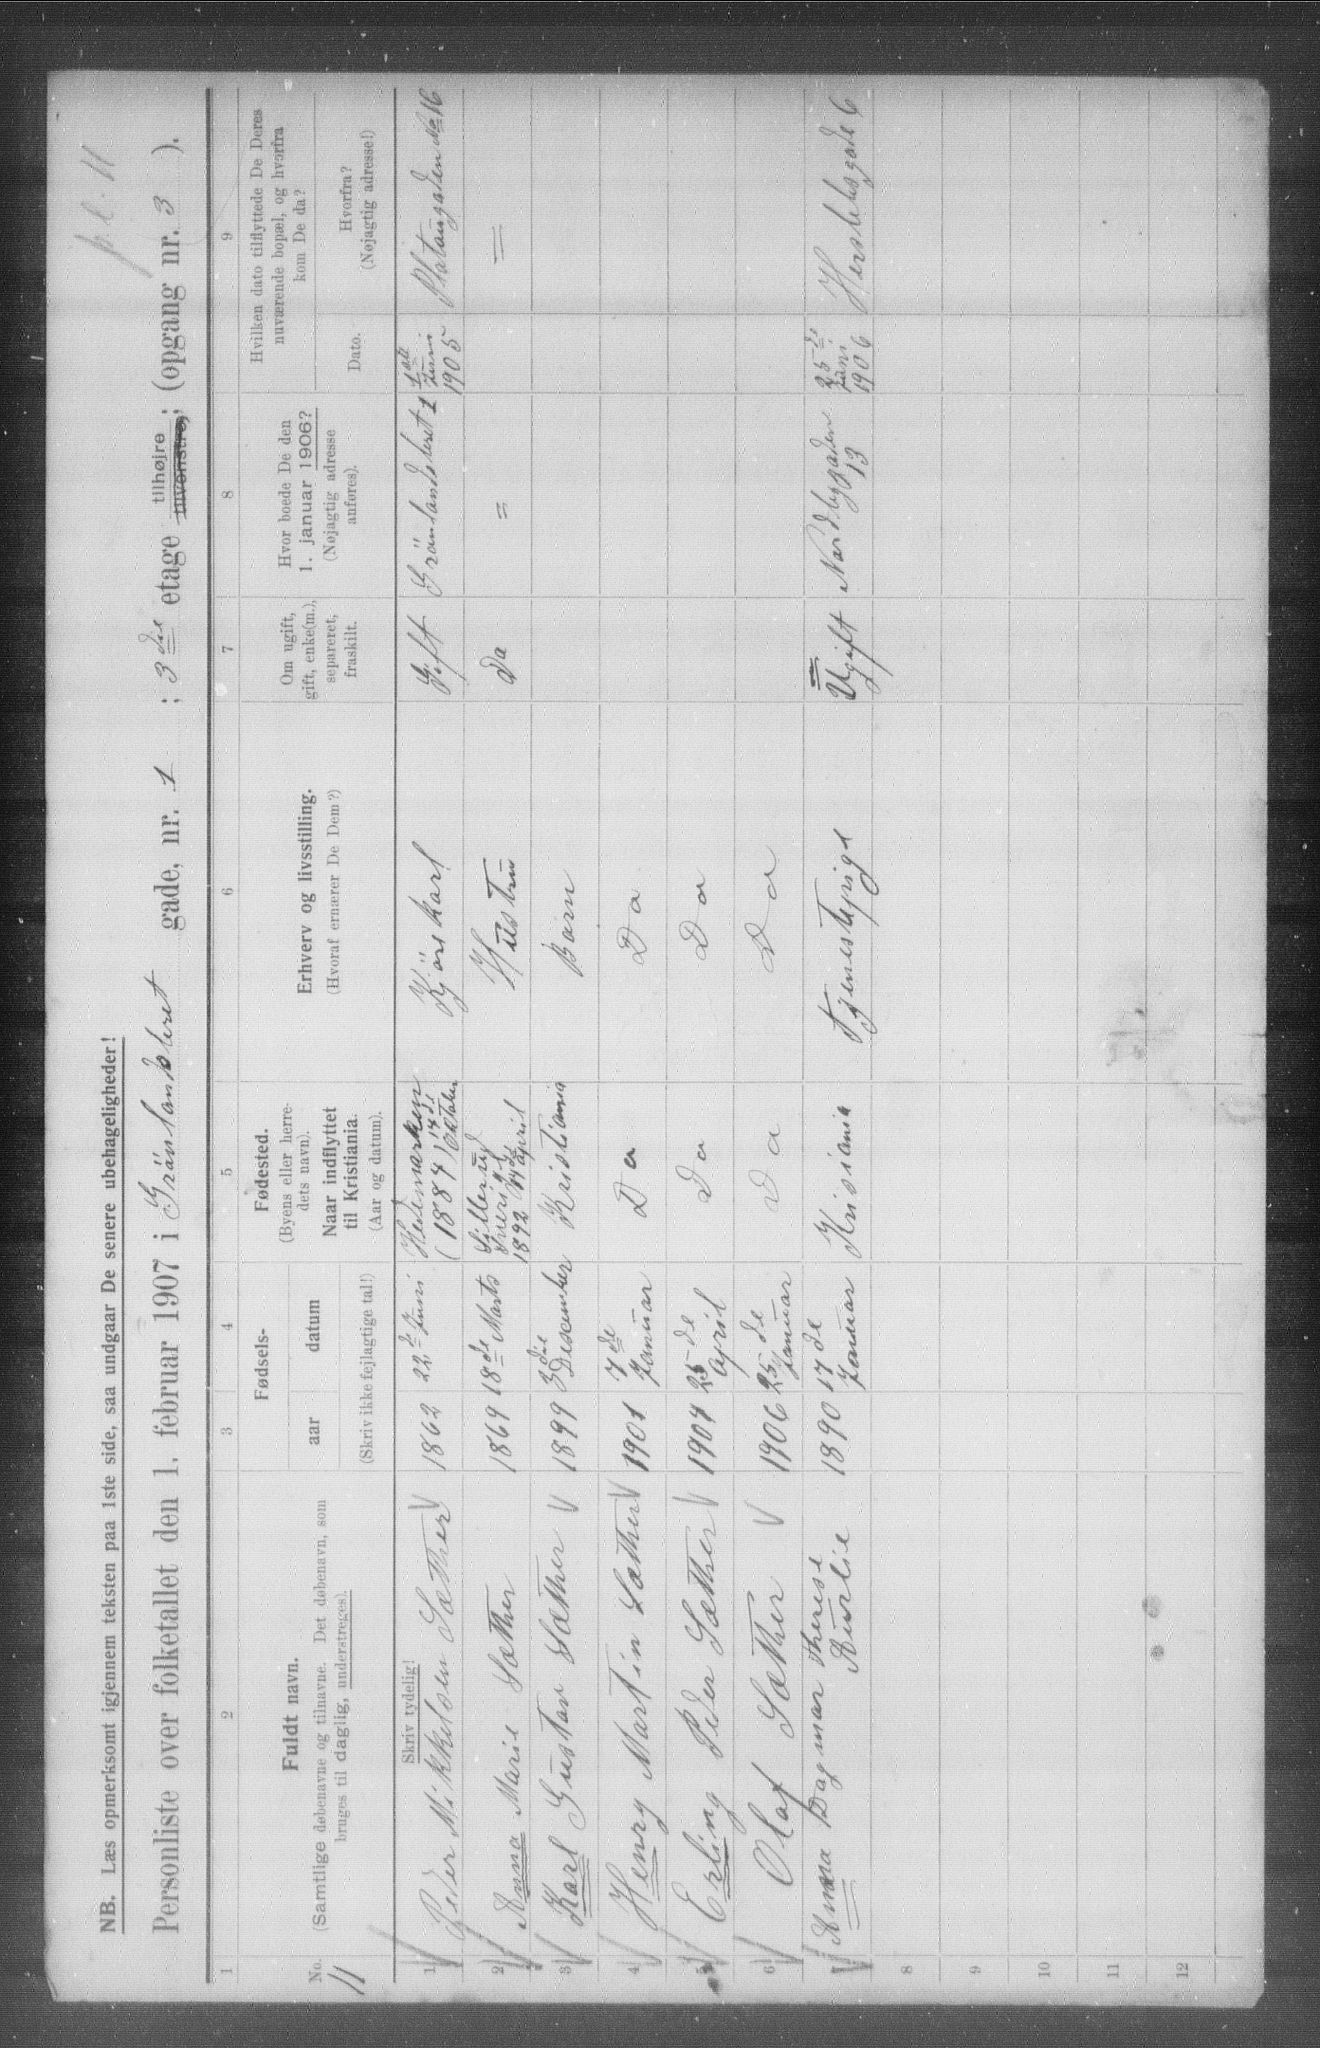 pl. 11
NB. Læs opmerksomt igjennem teksten paa 1ste side, saa undgaar De senere ubehageligheder!
Personliste over folketallet den 1. februar 1907 i Grönlandsleret gade, nr. 1 ; 3 die etage tilhøjre ; (opgang nr. 3 ).
tilvenstre,
1 2 3 4 5 6 7 8 9
No.
11
Fuldt navn.
(Samtlige døbenavne og tilnavne. Det døbenavn, som
bruges til daglig, understreges).
Fødsels-
aar datum
(Skriv ikke fejlagtige tal!)
Fødested.
(Byens eller herre-
dets navn).
Naar indflyttet
til Kristiania.
(Aar og datum).
Erhverv og livsstilling.
(Hvoraf ernærer De Dem?)
Om ugift,
gift, enke(m.),
separeret,
fraskilt.
Hvor boede De den
1. januar 1906?
(Nøjagtig adresse
anføres).
Hvilken dato tilflyttede De Deres
nuværende bopæl, og hvorfra
kom De da?
Dato.
Hvorfra?
(Nøjagtig adresse!)
Skriv tydelig!
1 Peder Mikkelsen Sæther 1862 22 de Juni Hedemarken (1884) 17 de Oktober Kjörekarl Gift Grönlandsleret 1 1905 Platousgaden No 16
2 Anna Marie Sæther 1869 18 de Marts Sverige 1892 April Hustru Do = =
3 Karl Gustav Sæther 1899 3 die Descember Kristiania Barn
4 Henry Martin Sæther 1901 7 de Januar Do Do
5 Erling Peder Sæther 1904 25 de April Do Do
6 Olaf Sæther 1906 25 de Januar Do Do
7 Anna Dagmar Therese Aurlie 1890 17 de Januar Krisiania Tjenestepige Ugift Nordbygaden 13 25 de Juni 1906 Herslebsgade 6
8
9
10
11
12